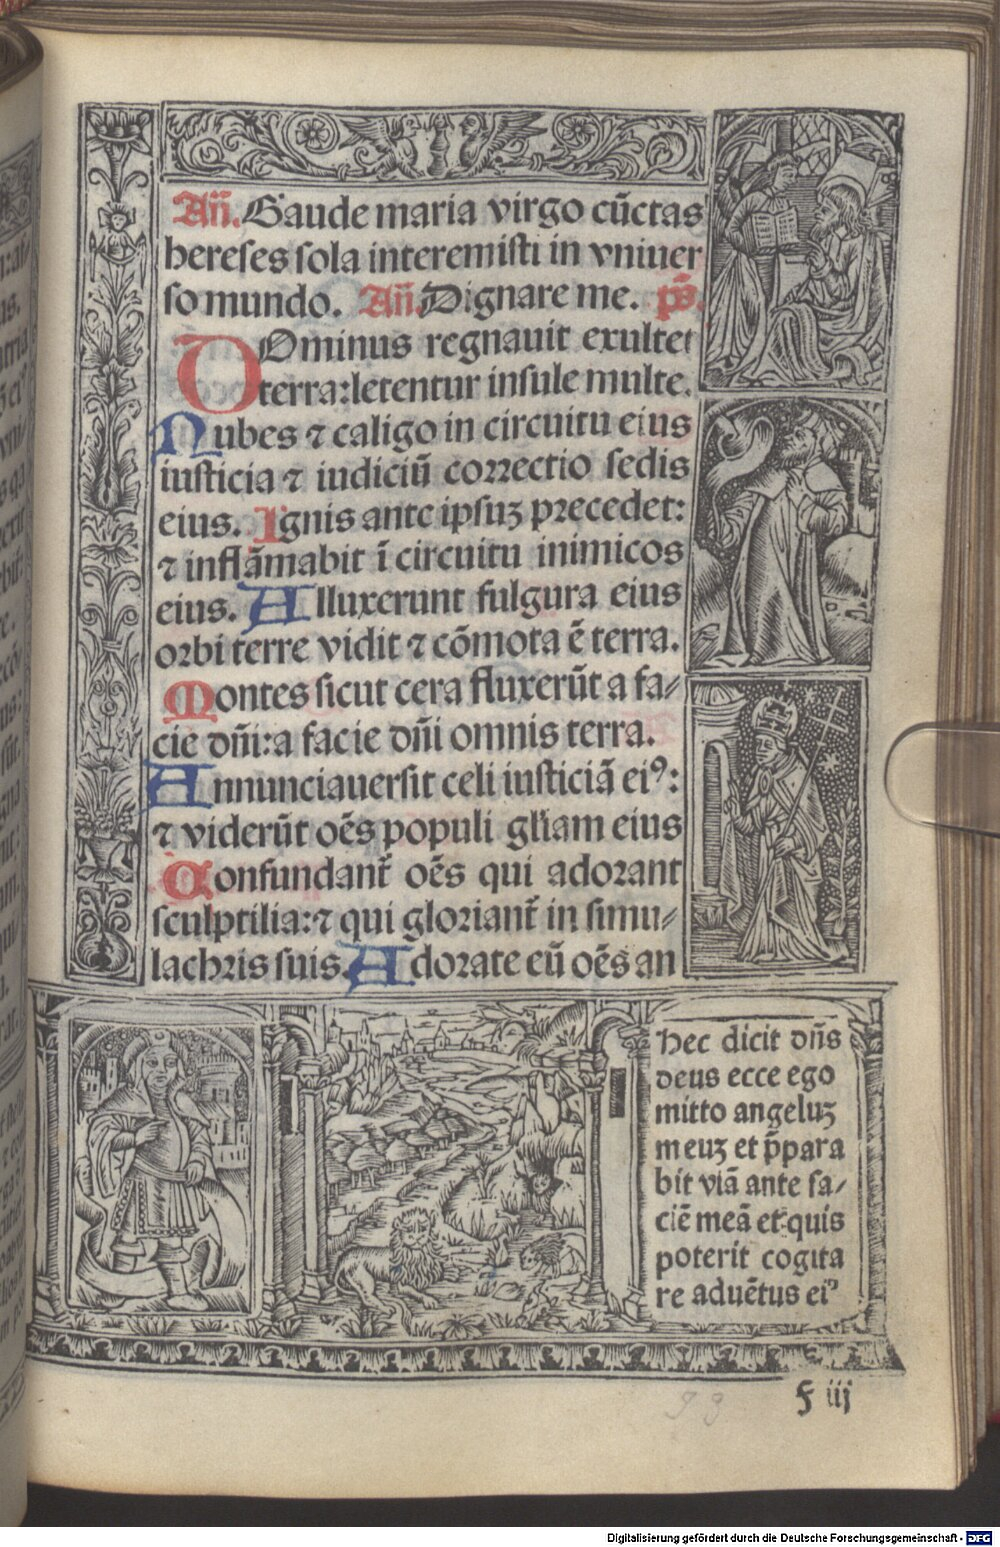 An̄. Gaude maria virgo cūctas
hereses sola interemisti in vniuer
so mundo. An̄. Dignare me. ps̄.
DOminus regnauit exultet
terra:letentur insule multe.
Nubes ⁊ caligo in circuitu eius
iusticia ⁊ iudiciū correctio sedis
eius. Ignis ante ipsuꝫ precedet:
⁊ inflāmabit ī circuitu inimicos
eius. Alluxerunt fulgura eius
orbi terre vidit ⁊ cōmota ē terra.
Montes sicut cera fluxerūt a fa⸗
cie dn̄i:a facie dn̄i omnis terra.
Annunciauersit celi iusticiā eiꝰ:
⁊ viderūt oēs populi gl̄iam eius
Confundant̄ oēs qui adorant
sculptilia:⁊ qui gloriant̄ in simu⸗
lachris suis. Adorate eū oēs an
Hec dicit dn̄s
deus ecce ego
mitto angeluꝫ
meuꝫ et p̄para
bit viā ante fa⸗
ciē meā et quis
poterit cogita
re aduētus eiꝰ
f iij
93
Digitalisierung gefördert durch die Deutsche Forschungsgemeinschaft - DFG